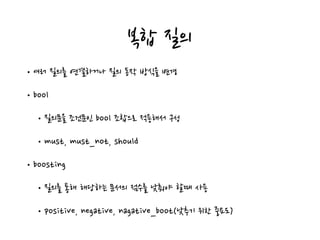 복합 질의
• 여러 질의를 연결하거나 질의 동작 방식을 변경
• bool
• 질의문을 조건문인 bool 조합으로 적용해서 구성
• must, must_not, should
• boosting
• 질의를 통해 해당하는 문서의 점수를 낮춰야 할때 사용
• positive, negative, nagative_boot(낮추기 위한 중요도)